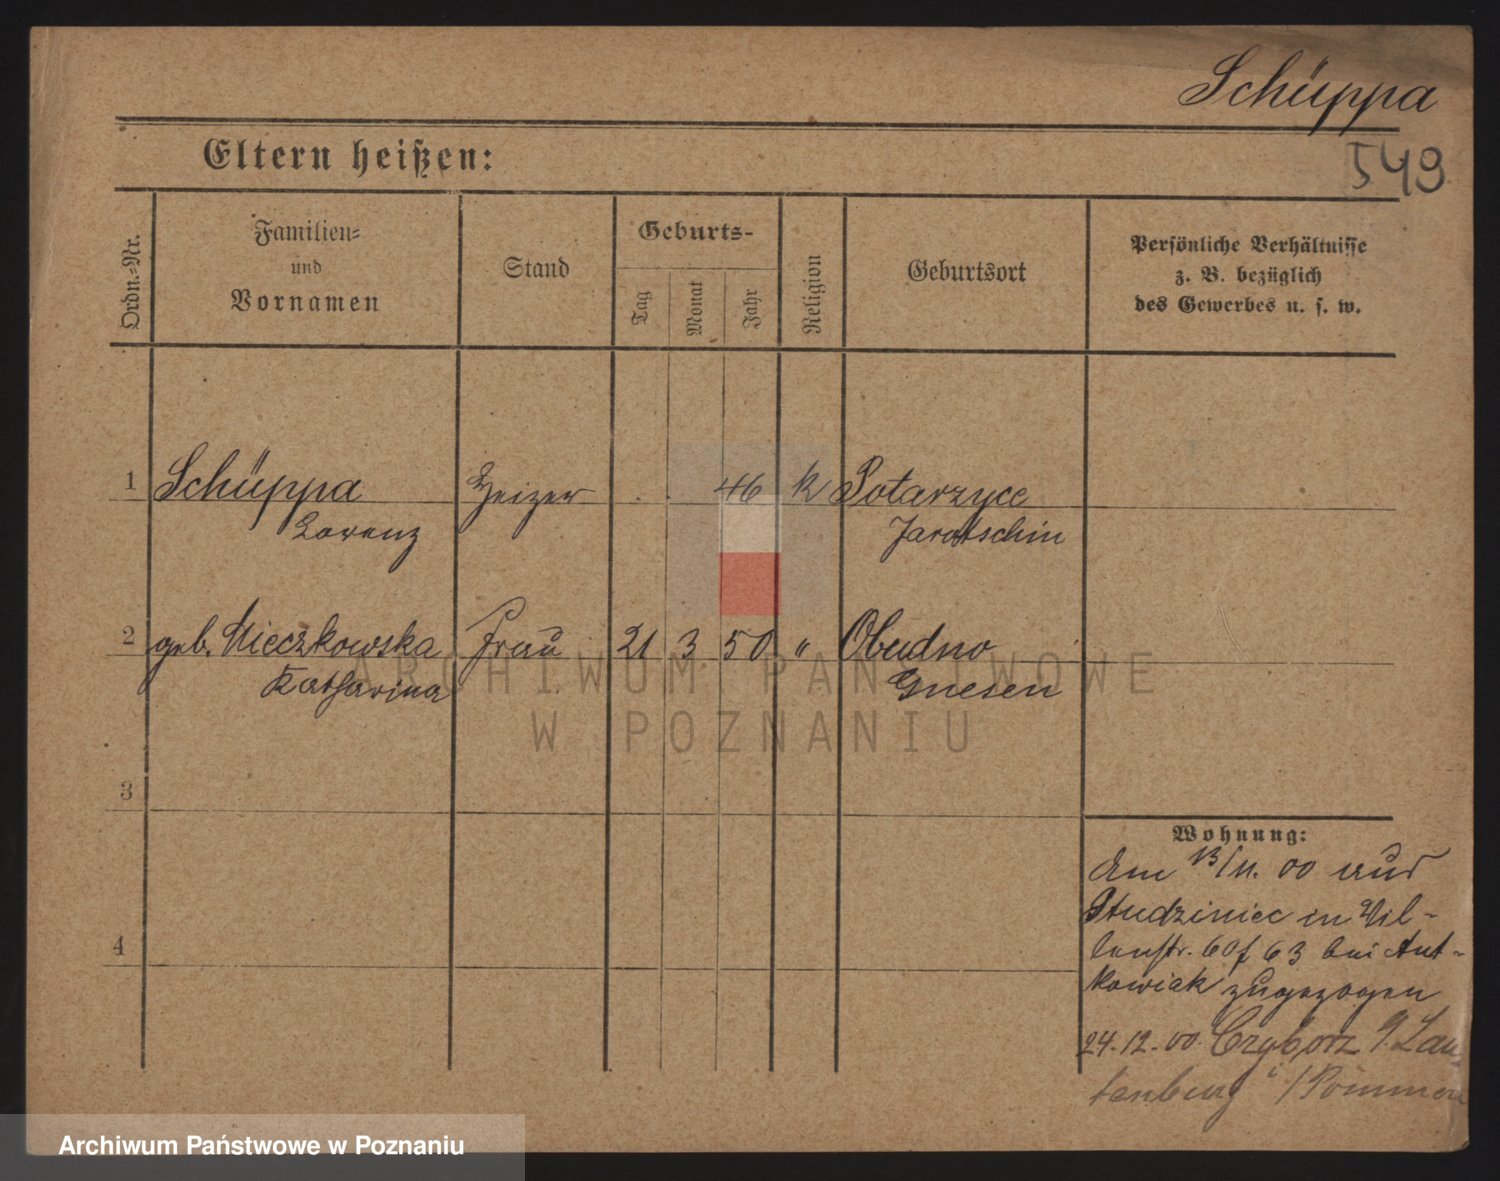 Schüppa
549
Eltern heißen:
Ordn.=Nr.
Familien=
und
Vornamen
Stand
Geburts-
Tag
Monat
Jahr
Religion
Geburtsort
Persönliche Verhältnisse
z. B. bezüglich
des Gewerbes u. s. w.
1 Schüppa Heizer 46 k Potarzyce
Lorenz Jarotschin
2 geb. Mieczkowska Frau 21 3 50 " Obudno
Katharina Gnesen
3
4
Wohnung:
Am 13/11. 00 aus
Studziniec in Vil-
lenstr. 60/63 bei Ant-
kowiak zugezogen
24.12.00. Lau
tenburg i/Pommern
ARCHIWUM PAŃSTWOWE
W POZNANIU
Archiwum Państwowe w Poznaniu